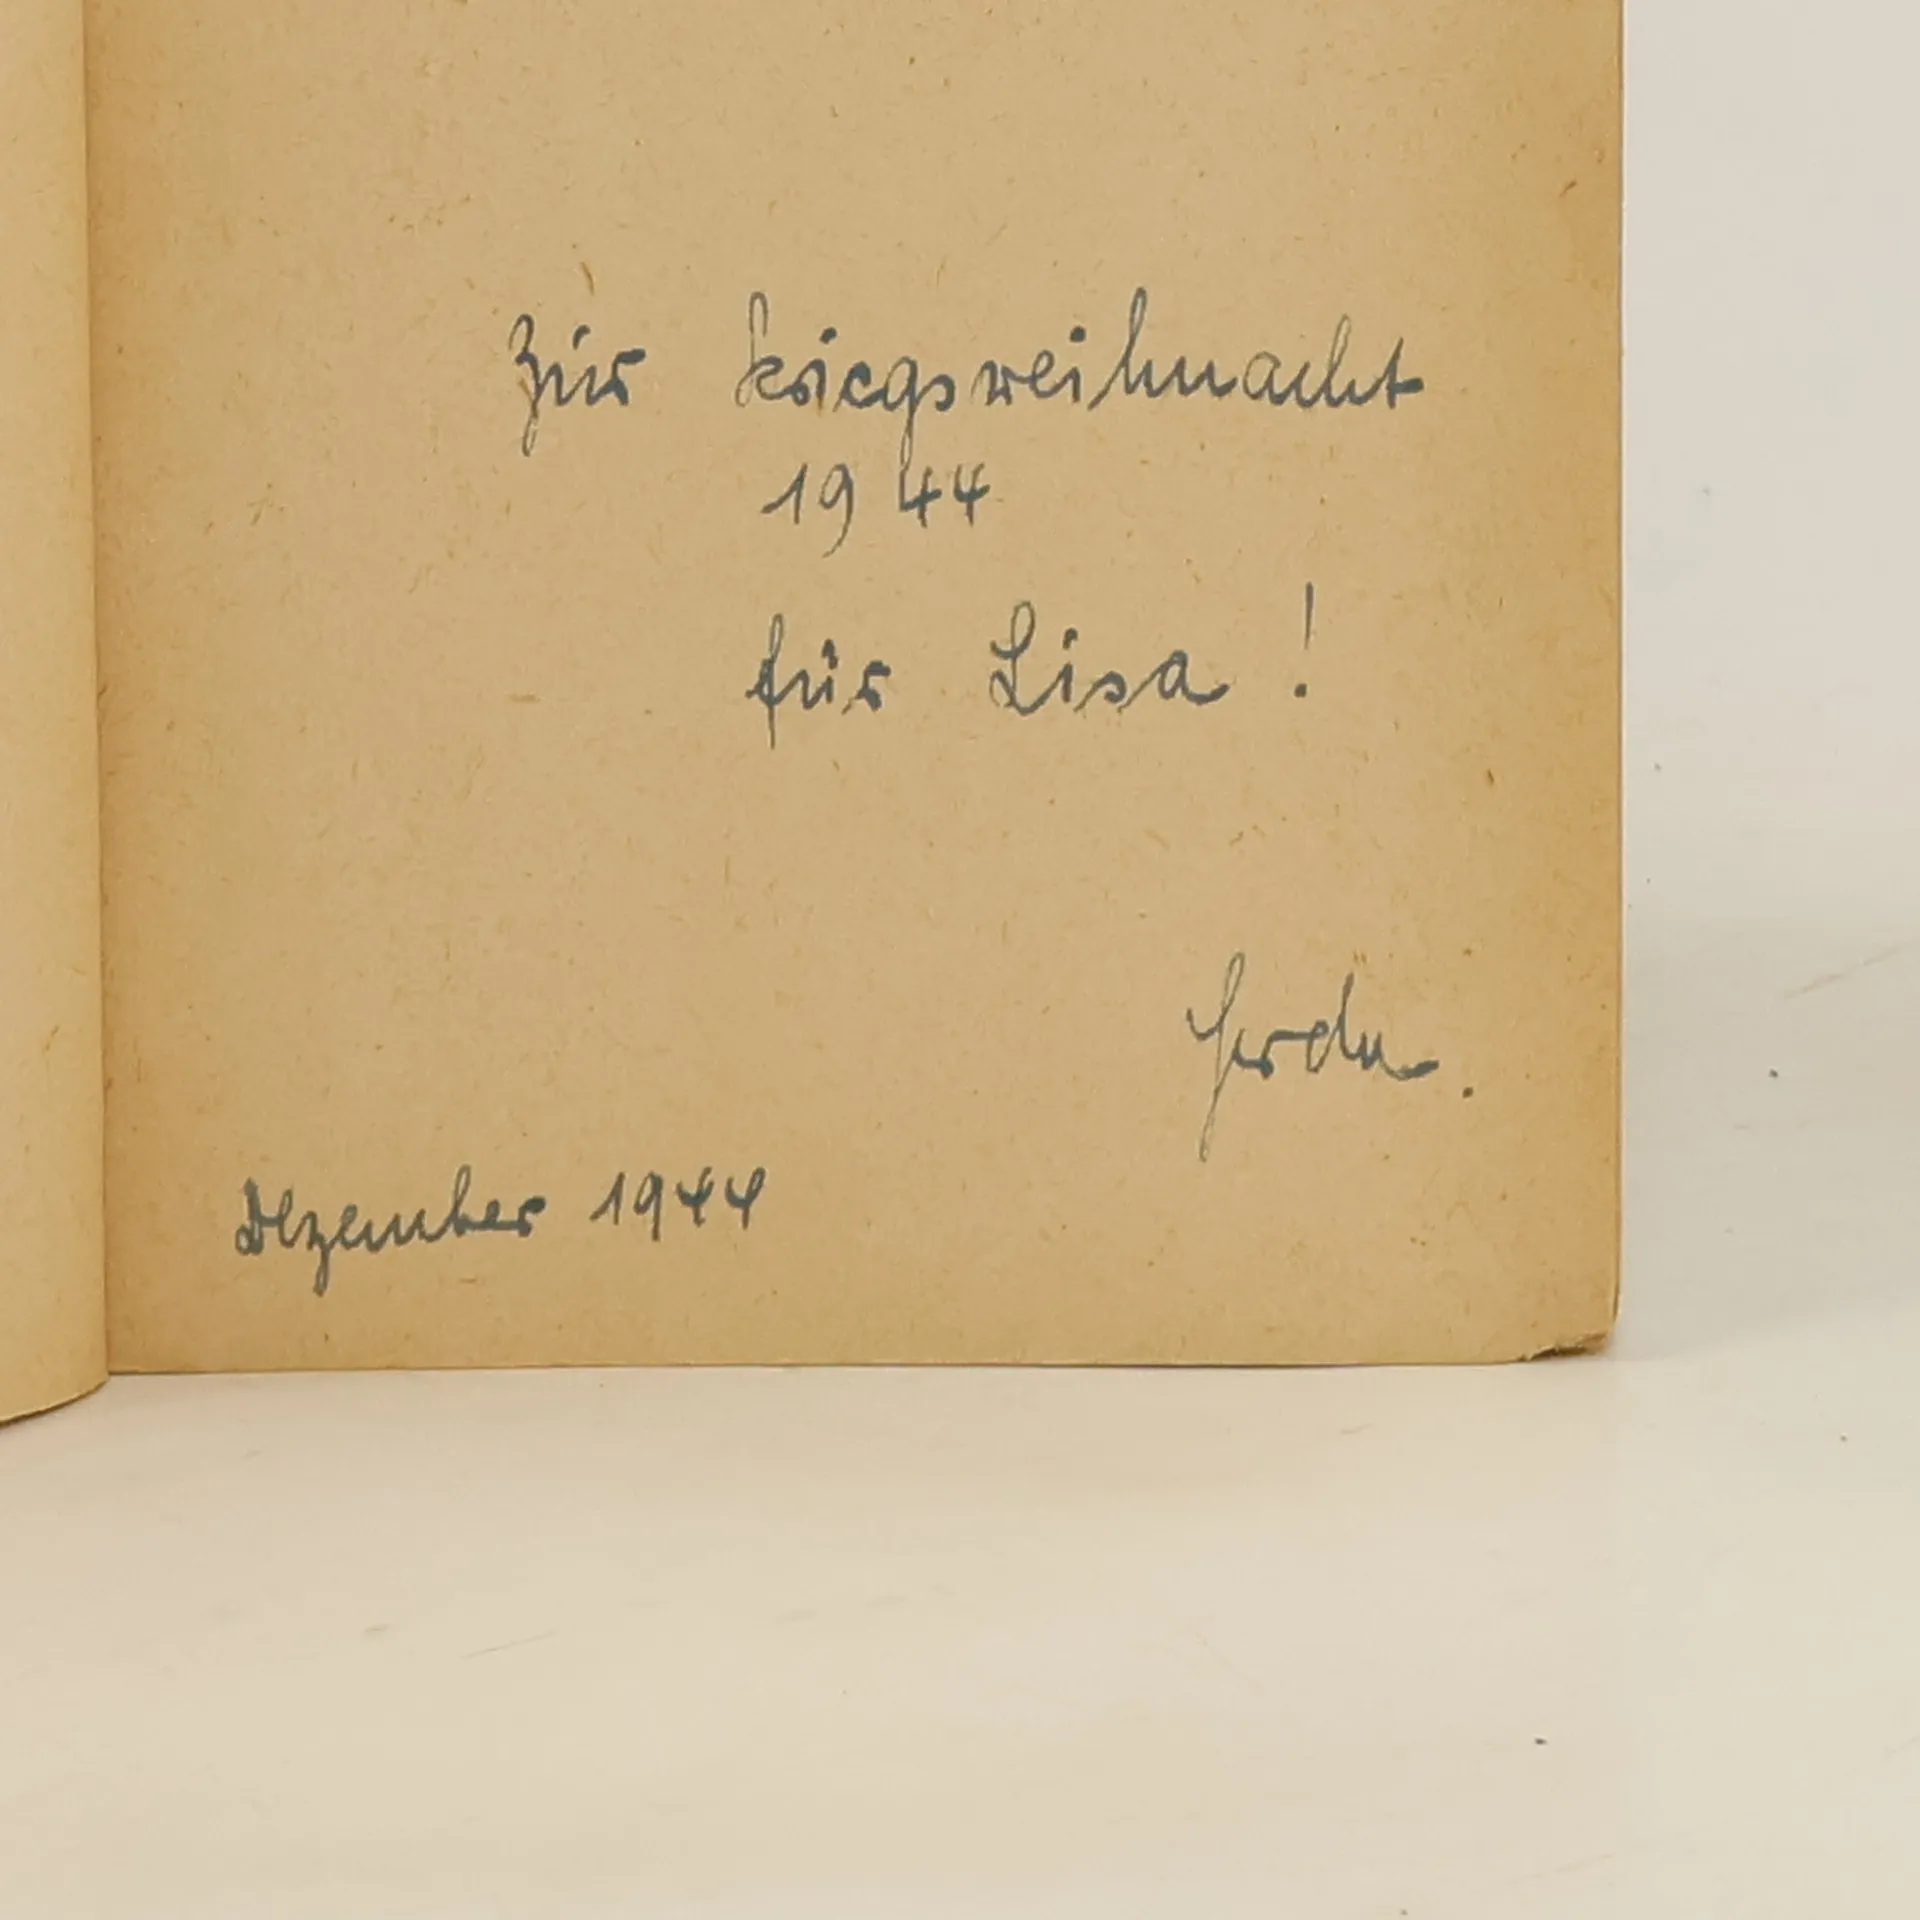 Zur Kriegsweihnacht
1944
für Lisa!
Gerda.
Dezember 1944